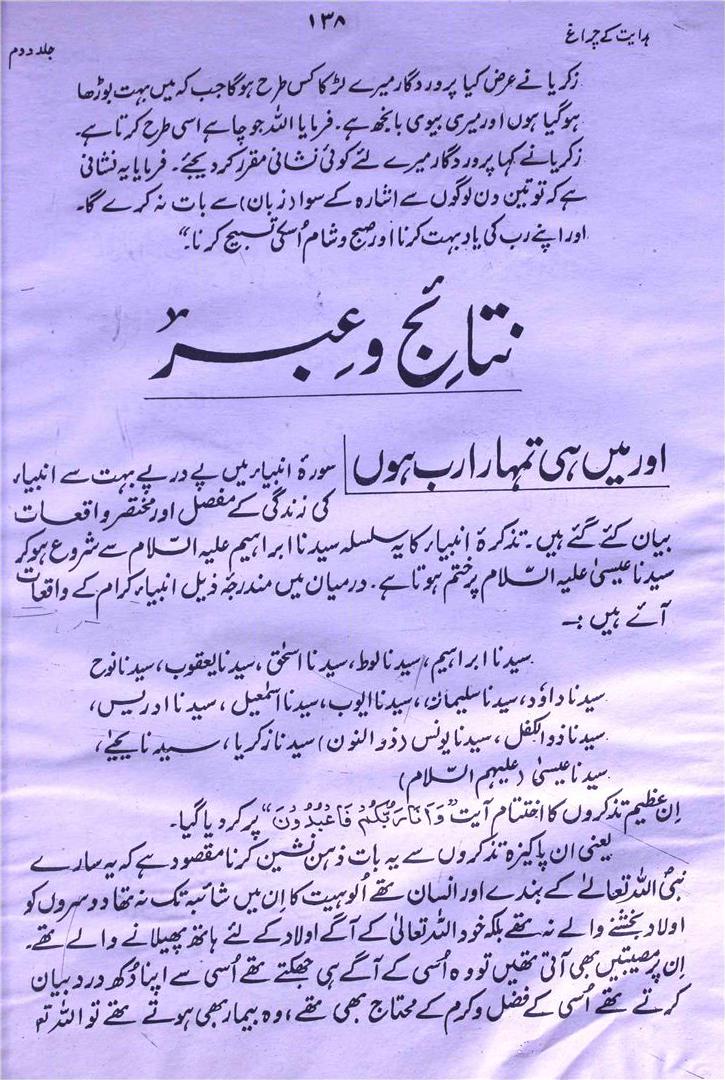 ہدایت کے چراغ
۱۳۸
جلد دوم
زکریا نے عرض کیا پروردگار میرے لڑکا کس طرح ہوگا جب کہ میں بہت بوڑھا
ہوگیا ہوں اور میری بیوی بانجھ ہے۔ فرمایا اللہ جو چاہے اسی طرح کرتا ہے۔
زکریا نے کہا پروردگار میرے لئے کوئی نشانی مقرر کر دیجئے۔ فرمایا یہ نشانی
ہے کہ تو تین دن لوگوں سے اشارہ کے سوا (زبان) سے بات نہ کرے گا۔
اور اپنے رب کی یاد بہت کرنا اور صبح و شام اُسکی تسبیح کرنا۔“
نتائج و عِبر
اور میں ہی تمہارا رب ہوں
سورۂ انبیاء میں پے در پے بہت سے انبیاء
کی زندگی کے مفصل اور مختصر واقعات
بیان کئے گئے ہیں۔ تذکرۂ انبیاء کا یہ سلسلہ سیدنا ابراہیم علیہ السّلام سے شروع ہوکر
سیدنا عیسیٰ علیہ السّلام پر ختم ہوتا ہے۔ درمیان میں مندرجۂ ذیل انبیاء کرام کے واقعات
آئے ہیں :۔
سیدنا ابراہیم، سیدنا لوط، سیدنا اسحٰق، سیدنا یعقوب، سیدنا نوح
سیدنا داؤد، سیدنا سلیمان، سیدنا ایوب، سیدنا اسمٰعیل، سیدنا ادریس،
سیدنا ذوالکفل، سیدنا یونس (ذوالنون) سیدنا زکریا، سیدنا یحییٰ،
سیدنا عیسیٰ (علیہم السّلام)
اِن عظیم تذکروں کا اختتام آیت ”وَاَنَا رَبُّکُمْ فَاعْبُدُوْنَ“ پر کر دیا گیا۔
یعنی ان پاکیزہ تذکروں سے یہ بات ذہن نشین کرنا مقصود ہے کہ یہ سارے
نبیُ اللہ تعالےٰ کے بندے اور انسان تھے اُلوہیت کا اِن میں شائبہ تک نہ تھا دوسروں کو
اولاد بخشنے والے نہ تھے بلکہ خود اللہ تعالیٰ کے آگے اولاد کے لئے ہاتھ پھیلانے والے تھے۔
اِن پر مصیبتیں بھی آتی تھیں تو وہ اُسی کے آگے ہی جھکتے تھے اُسی سے اپنا دُکھ درد بیان
کرتے تھے اُسی کے فضل و کرم کے محتاج بھی تھے، وہ بیمار بھی ہوتے تھے تو اللہ